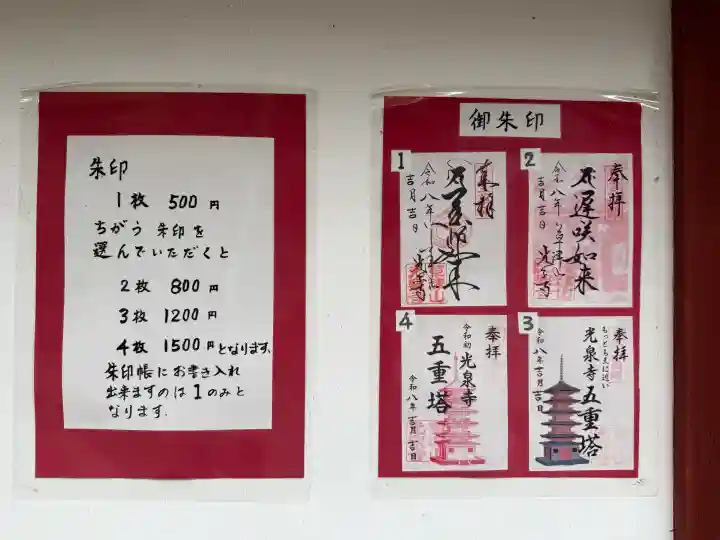 朱印
1枚 500円
ちがう 朱印を
選んでいただくと
2枚 800円
3枚 1200円
4枚 1500円となります。
朱印帳にお書き入れ
出来ますのは1のみと
なります.
御朱印
1
奉拝
令和八年
吉月吉日
2
奉拝
不遅咲如来
令和八年
草津山
光泉寺
吉月吉日
4
奉拝
令和初
光泉寺
五重塔
令和八年吉月吉日
3
奉拝
光泉寺五重塔
令和八年吉月吉日